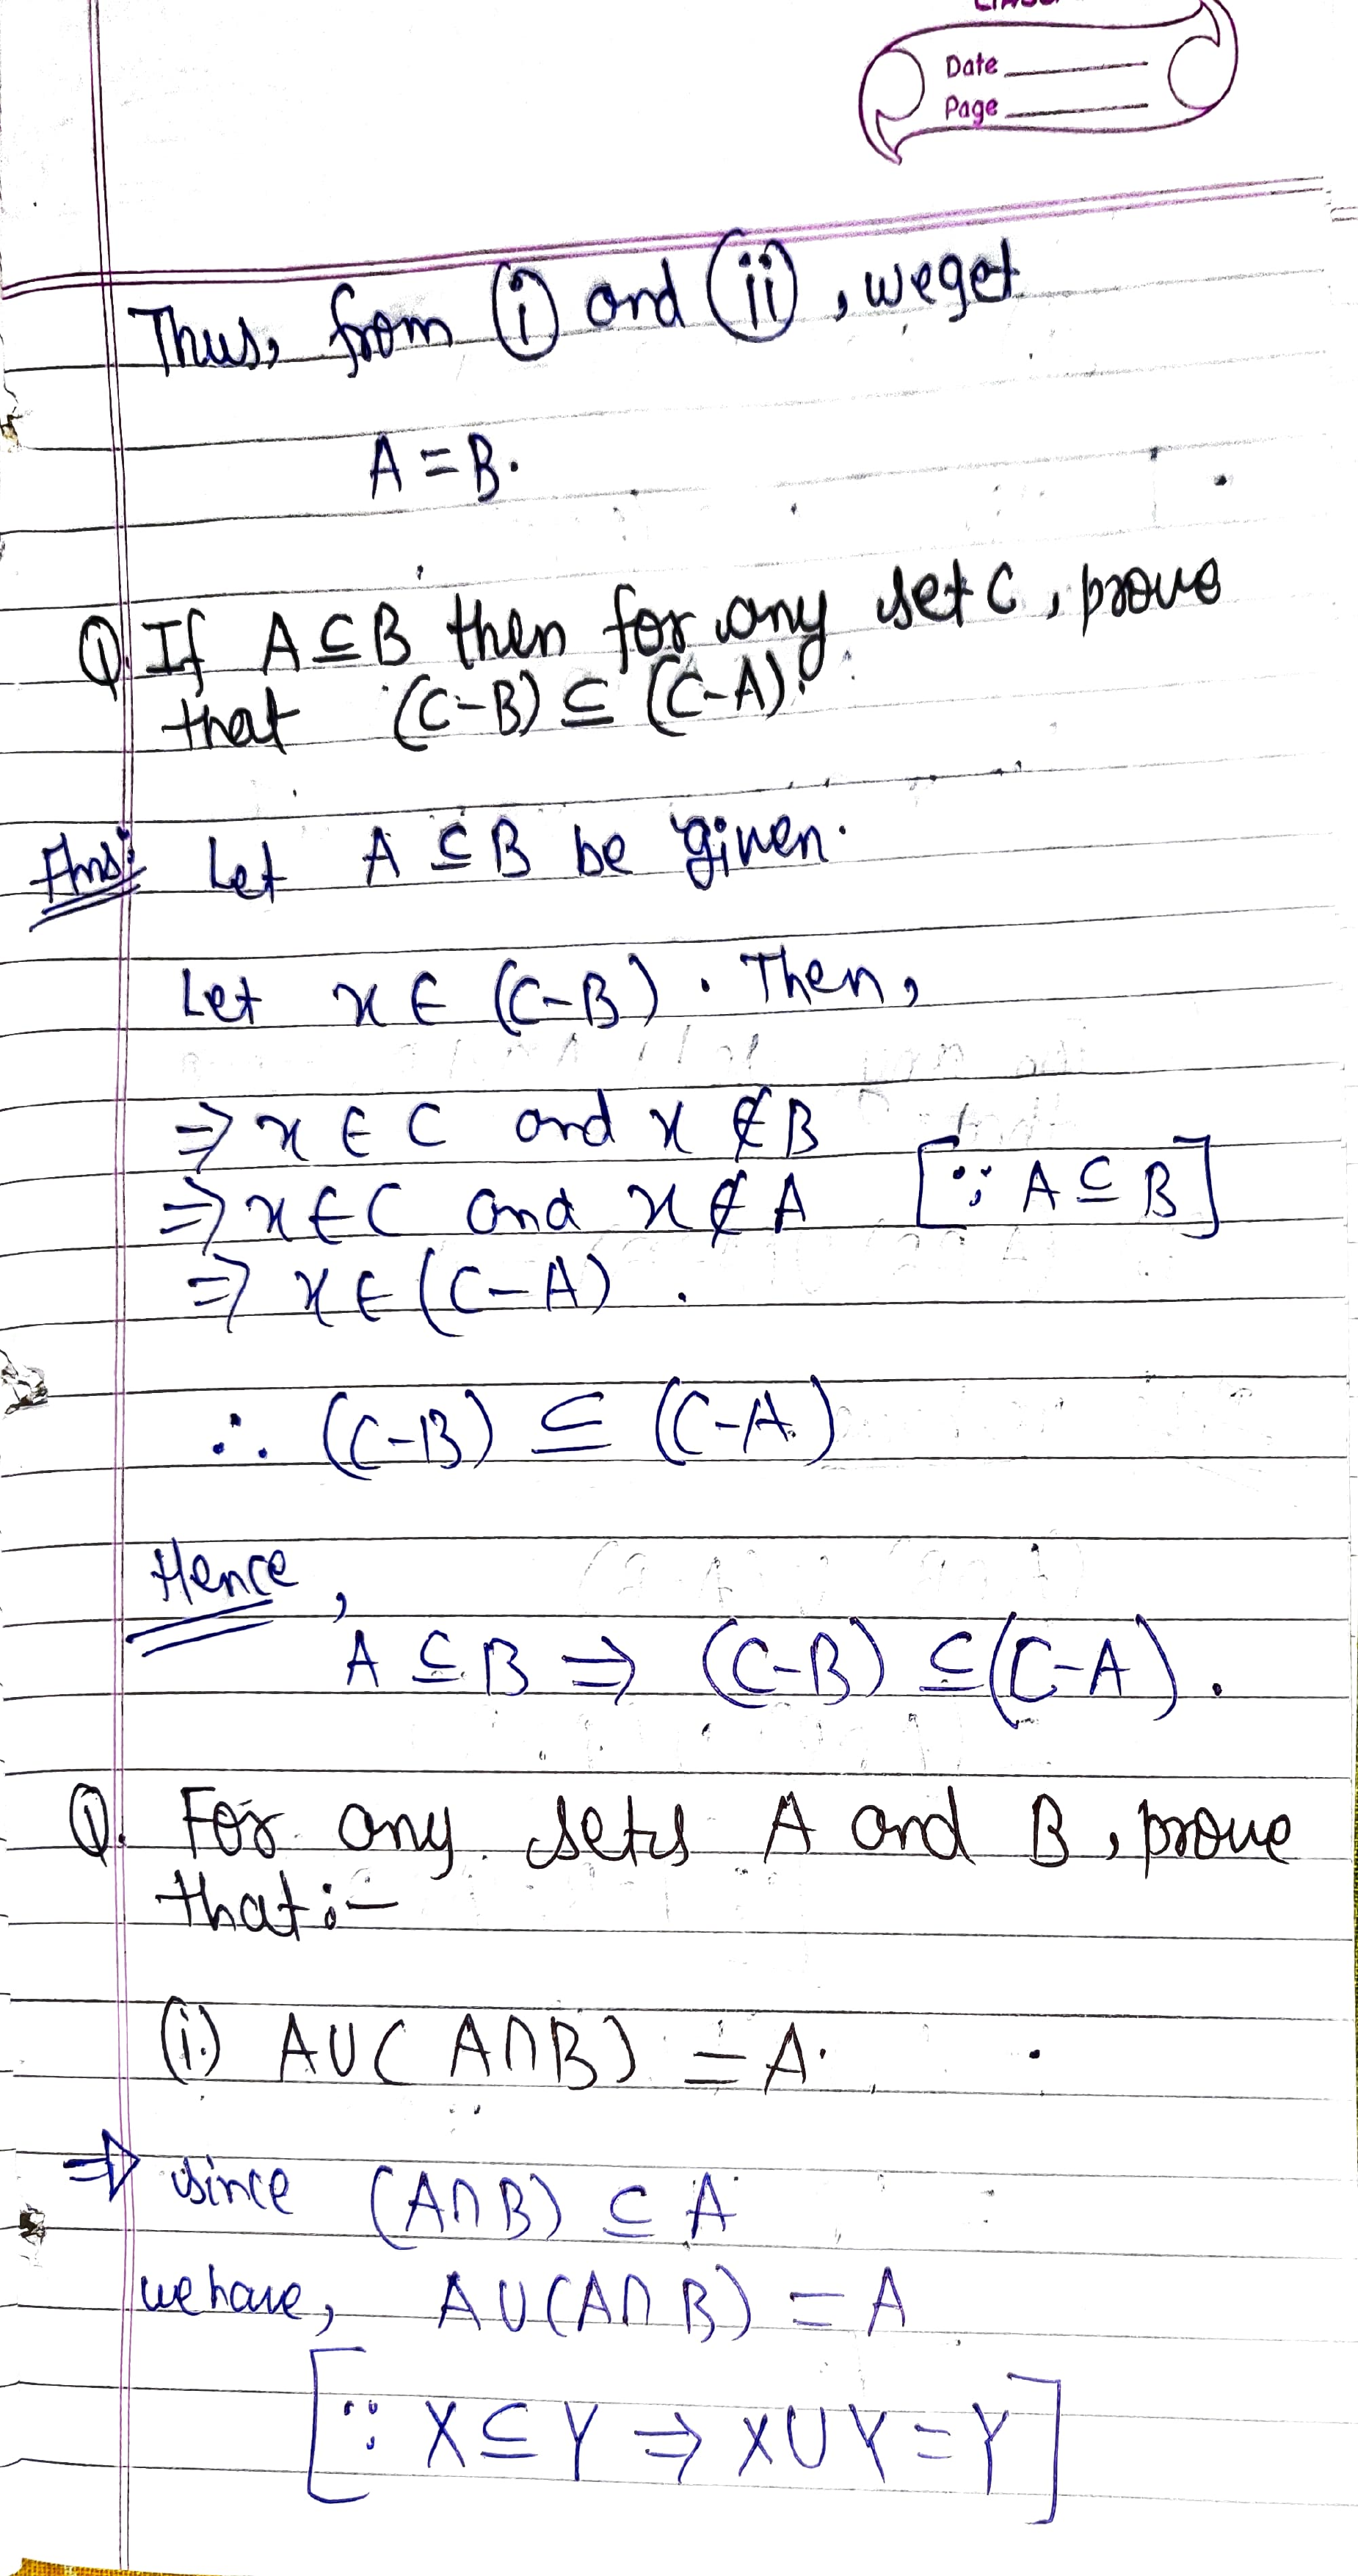 Date
Page
Thus, from (i) and (ii), we get
A = B.
Q. If A ⊆ B then for any set C, prove
that (C-B) ⊆ (C-A).
Ans: Let A ⊆ B be given.
Let x ∈ (C-B). Then,
⇒ x ∈ C and x ∉ B
⇒ x ∈ C and x ∉ A [∵ A ⊆ B]
⇒ x ∈ (C-A).
∴ (C-B) ⊆ (C-A)
Hence,
A ⊆ B ⇒ (C-B) ⊆ (C-A).
Q. For any sets A and B, prove
that:-
(i.) A∪(A∩B) = A.
⇒ since (A∩B) ⊆ A
we have, A∪(A∩B) = A
[∵ X ⊆ Y ⇒ X∪Y = Y]